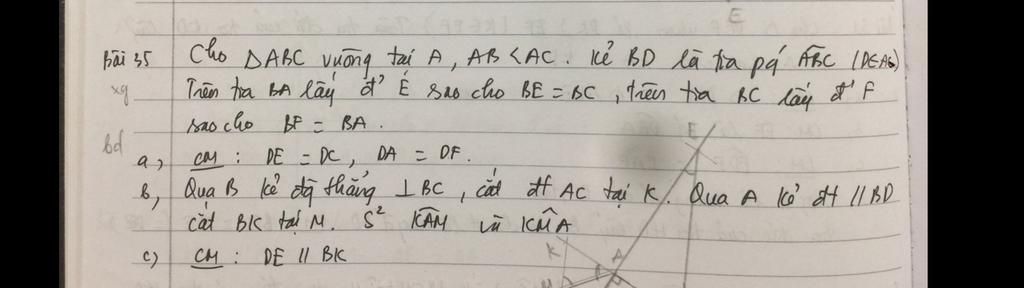 E
Bài 35 Cho ΔABC vuông tại A, AB < AC. Kẻ BD là tia pg ABC (D∈AC)
Trên tia BA lấy đ' E sao cho BE = BC, trên tia BC lấy đ' F
sao cho BF = BA.
a, CM: DE = DC, DA = DF.
b, Qua B kẻ đg thẳng ⊥ BC, cắt đt AC tại K. Qua A kẻ đt // BD
cắt BK tại M. S² KÂM và KM̂A
c) CM: DE // BK
E
K A
M